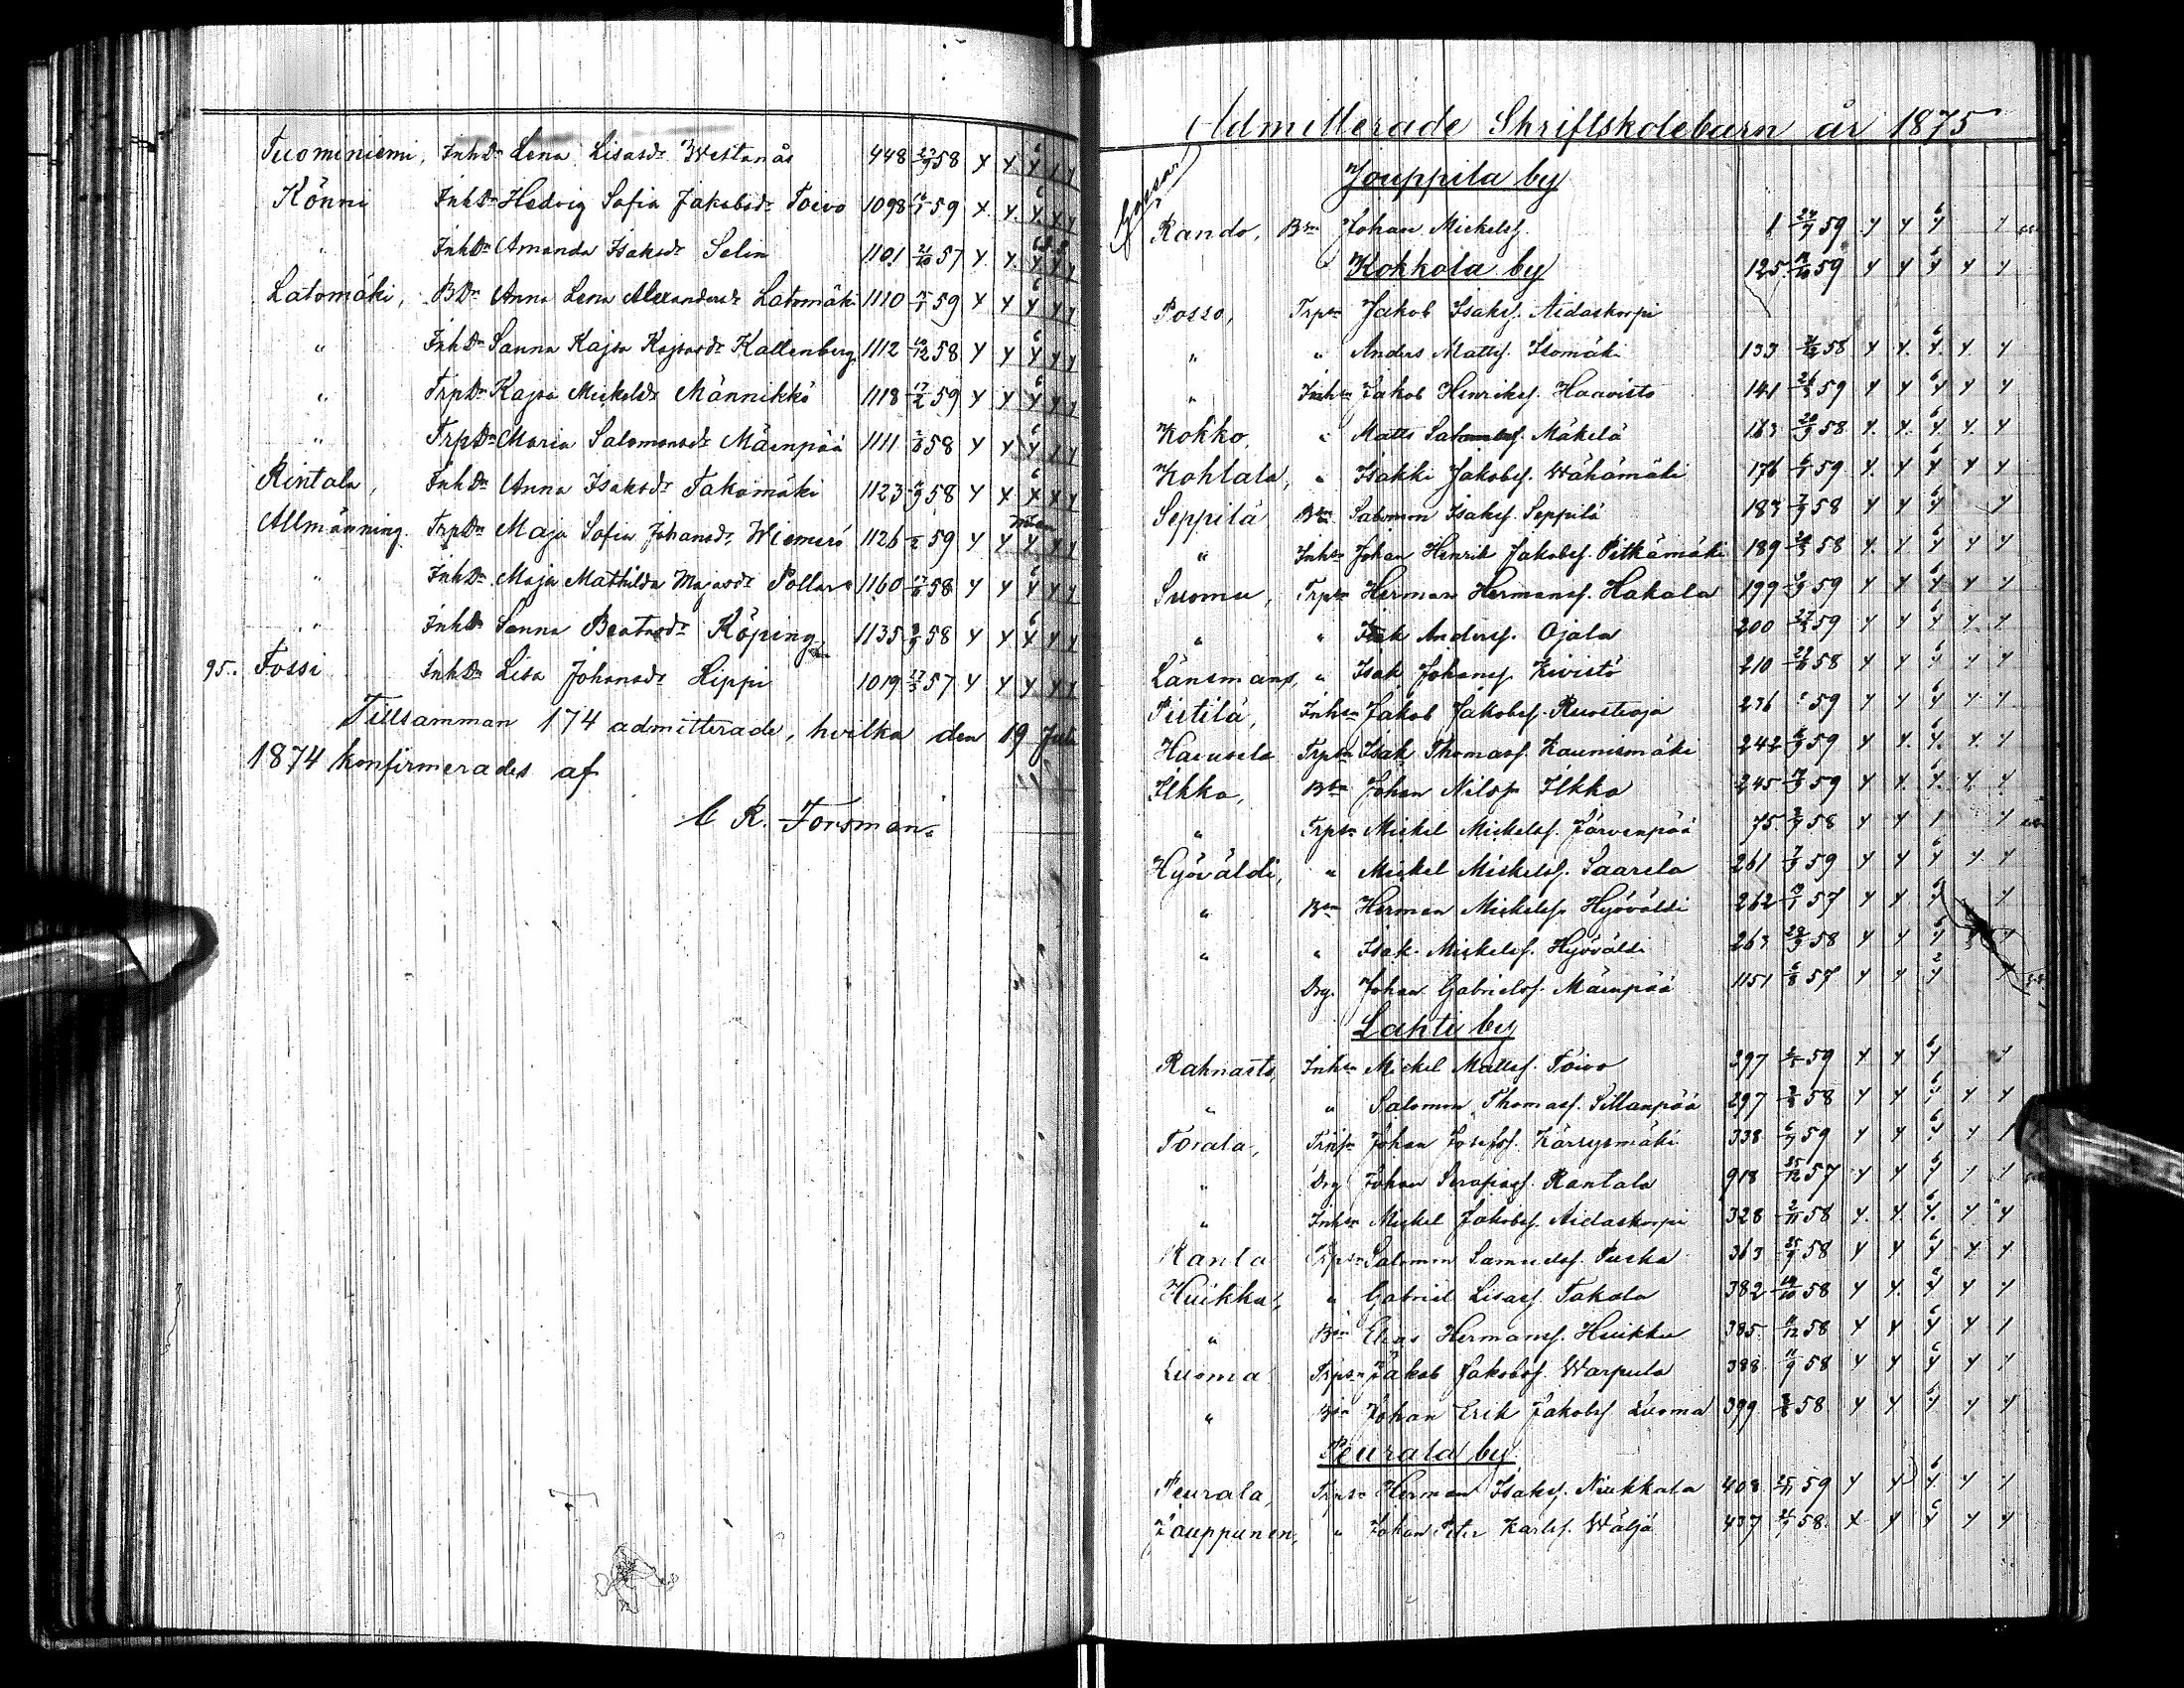 Tuominiemi, InhDr Lena Lisasdr Westanås 448 58 y y y y y
Könni InhDr Hedvig Sofia Jakobsdr Toivo 1098 59 x y y y y
" InhDr Amanda Isaksdr Selin 1101 21/10 57 y y y y y
Latomäki, BDr Anna Lena Alexandersdr Latomäki 1110 59 x y y y y
" InhDr Sanna Kajsa Kajsasdr Kallenberg 1112 58 y y y y y
" TrpDr Kajsa Mickelsdr Männikkö 1118 17/2 59 y y y y y
" TrpDr Maria Salomonsdr Mäenpää 1111 58 y y y y y
Rintala, InhDr Anna Isaksdr Takamäki 1123 58 y x x x y
Allmänning. TrpDr Maja Sofia Johansdr Wiemerö 1126 59 y y y y y
" InhDr Maja Mathilda Majasdr Pollari 1160 58 y y y y y
" InhDr Sanna Beatasdr Köping 1135 58 y y x y y
95. Tossi InhDr Lisa Johansdr Lippi 1019 57 y y y y y
Tillsamman 174 admitterade, hvilka den 19 Juli
1874 konfirmerades af
C R. Forsman
Admitterade Skriftskolebarn år 1875
Gossar
Jouppila by
Rando, Bsn Johan Mickelsf. 1 59 y y y y
Kokkola by 125 59 y y y y y
Posso, Trpsn Jakob Isaksf. Aidaskorpi
" " Anders Mattsf. Isomäki 133 58 y y y y y
" Inhsn Jakob Henriksf. Haavisto 141 59 y y y y y
Kokko, " Matts Mäkelä 163 20/9 58 y y y y y
Kohtala, " Isakki Jakobsf. Wähämäki 176 59 y y y y y
Seppilä Bsn Salomon Isaksf. Seppilä 183 58 y y y y
" Inhsn Johan Henrik Jakobsf. Pitkämäki 189 58 y y y y y
Suomu, Trpsn Herman Hermansf. Hakala 199 59 y y y y y
" " Isak Andersf. Ojala 200 59 y y y y y
Länsmans, " Isak Johansf. Kivistö 210 58 y y y y y
Piitilä, Inhsn Jakob Jakobsf. Ruostoja 236 59 y y y y y
Haensela Trpsn Isak Thomasf. Kaunismäki 242 59 y y y y y
Ilkka, Bsn Johan Nilsf. Ilkka 245 59 y y y y y
" Trpsn Mickel Mickelsf. Järvenpää 75 58 y y y y
Hyöväldi, " Mickel Mickelsf. Saarela 261 59 y y y y y
" Bsn Herman Mickelsf. Hyöväldi 262 57 y y y y
" " Isak Mickelsf. Hyöväldi 263 58 y y y y
Drg. Johan Gabrielsf. Mäenpää 1151 57 y y y
Lahti by
Rahnasto, Inhsn Mickel Mattsf. Toivo 297 59 y y y y
" " Salomon Thomasf. Sillanpää 297 58 y y y y y
Torala, Trpsn Johan Josefsf. Kärrysmäki 338 59 y y y y y
" Drg Johan Serafiasf. Rantala 918 25/12 57 y y y y y
" Inhsn Mickel Jakobsf. Aidaskorpi 328 2/11 58 y y y y y
Ranta Trpsn Salomon Samuelsf. Puska 363 25/9 58 y y y y y
Huikku, " Gabriel Lisasf. Takala 382 58 y y y y y
" Bsn Elias Hermansf. Huikku 385 58 y y y y y
Luoma Trpsn Jakob Jakobsf. Warpula 388 11/9 58 y y y y y
" Bsn Johan Erik Jakobsf. Luoma 399 58 y y y y y
Peurala by
Peurala, Trpsn Herman Isaksf. Niukkala 408 59 y y y y y
Jouppunen, " Johan Peter Karlsf. Wäljä 437 58 x y y y y